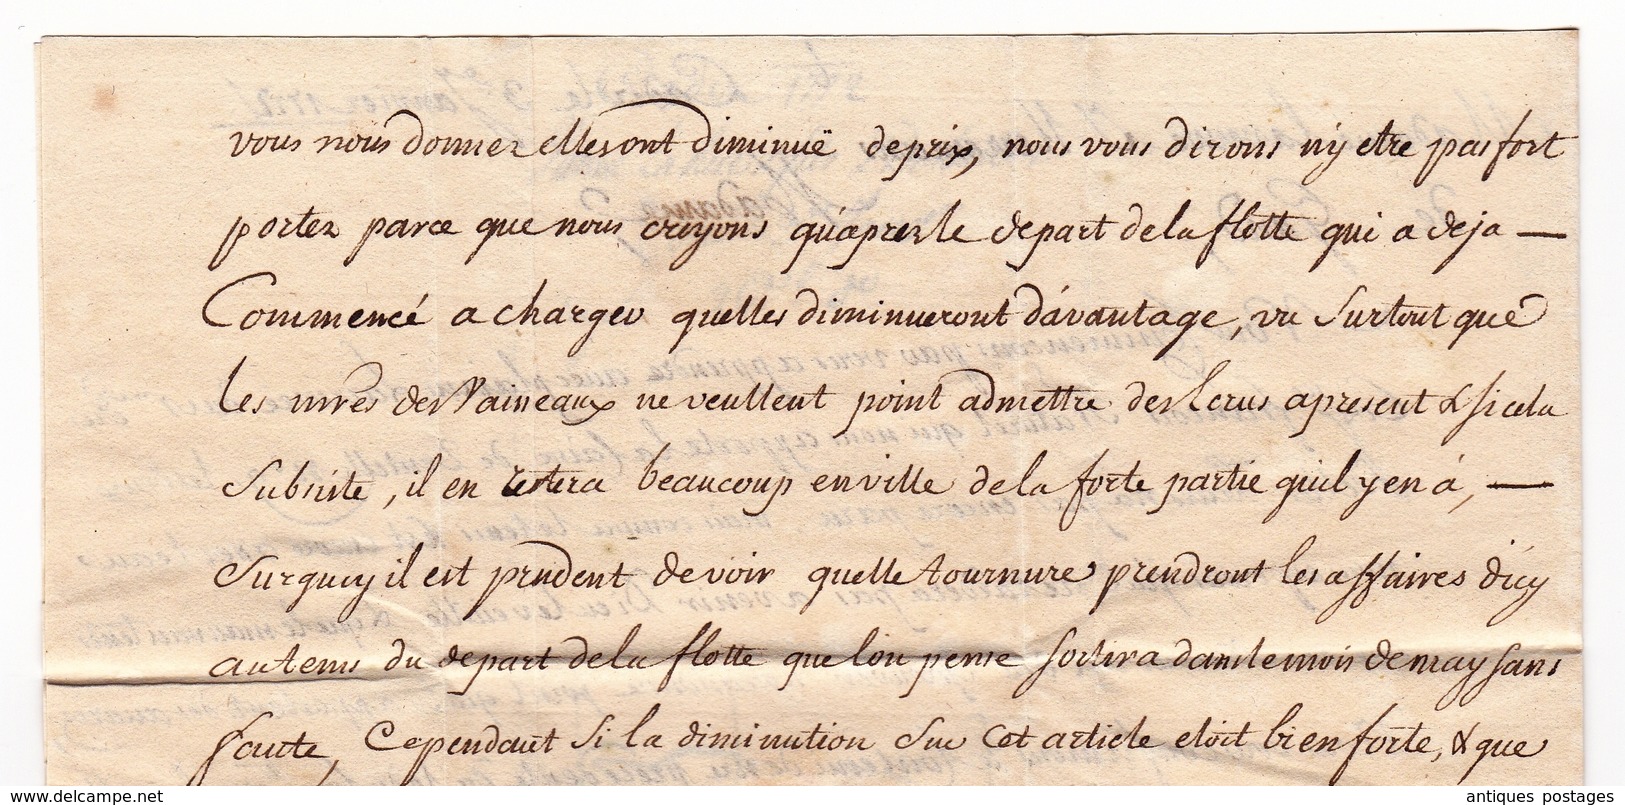 vous nous donner elles ont diminuë de prix, nous vous dirons n'y etre pas fort
portez parce que nous croyons qu'apres le depart de la flotte qui a deja —
Commencé a charger quelles diminueront d'avantage, vu surtout que
les mres des Vaineaux ne veullent point admettre des Ecrus apresent & si cela
Subsiste, il en restera beaucoup en ville de la forte partie quil y en á, —
Surquoy il est prudent de voir quelle tournure prendront les affaires d'icy
au tems du depart de la flotte que lon pense sortira dans le mois de may sans
faute, Cependant si la diminution sur cet article etoit bien forte, & que
antiques postages